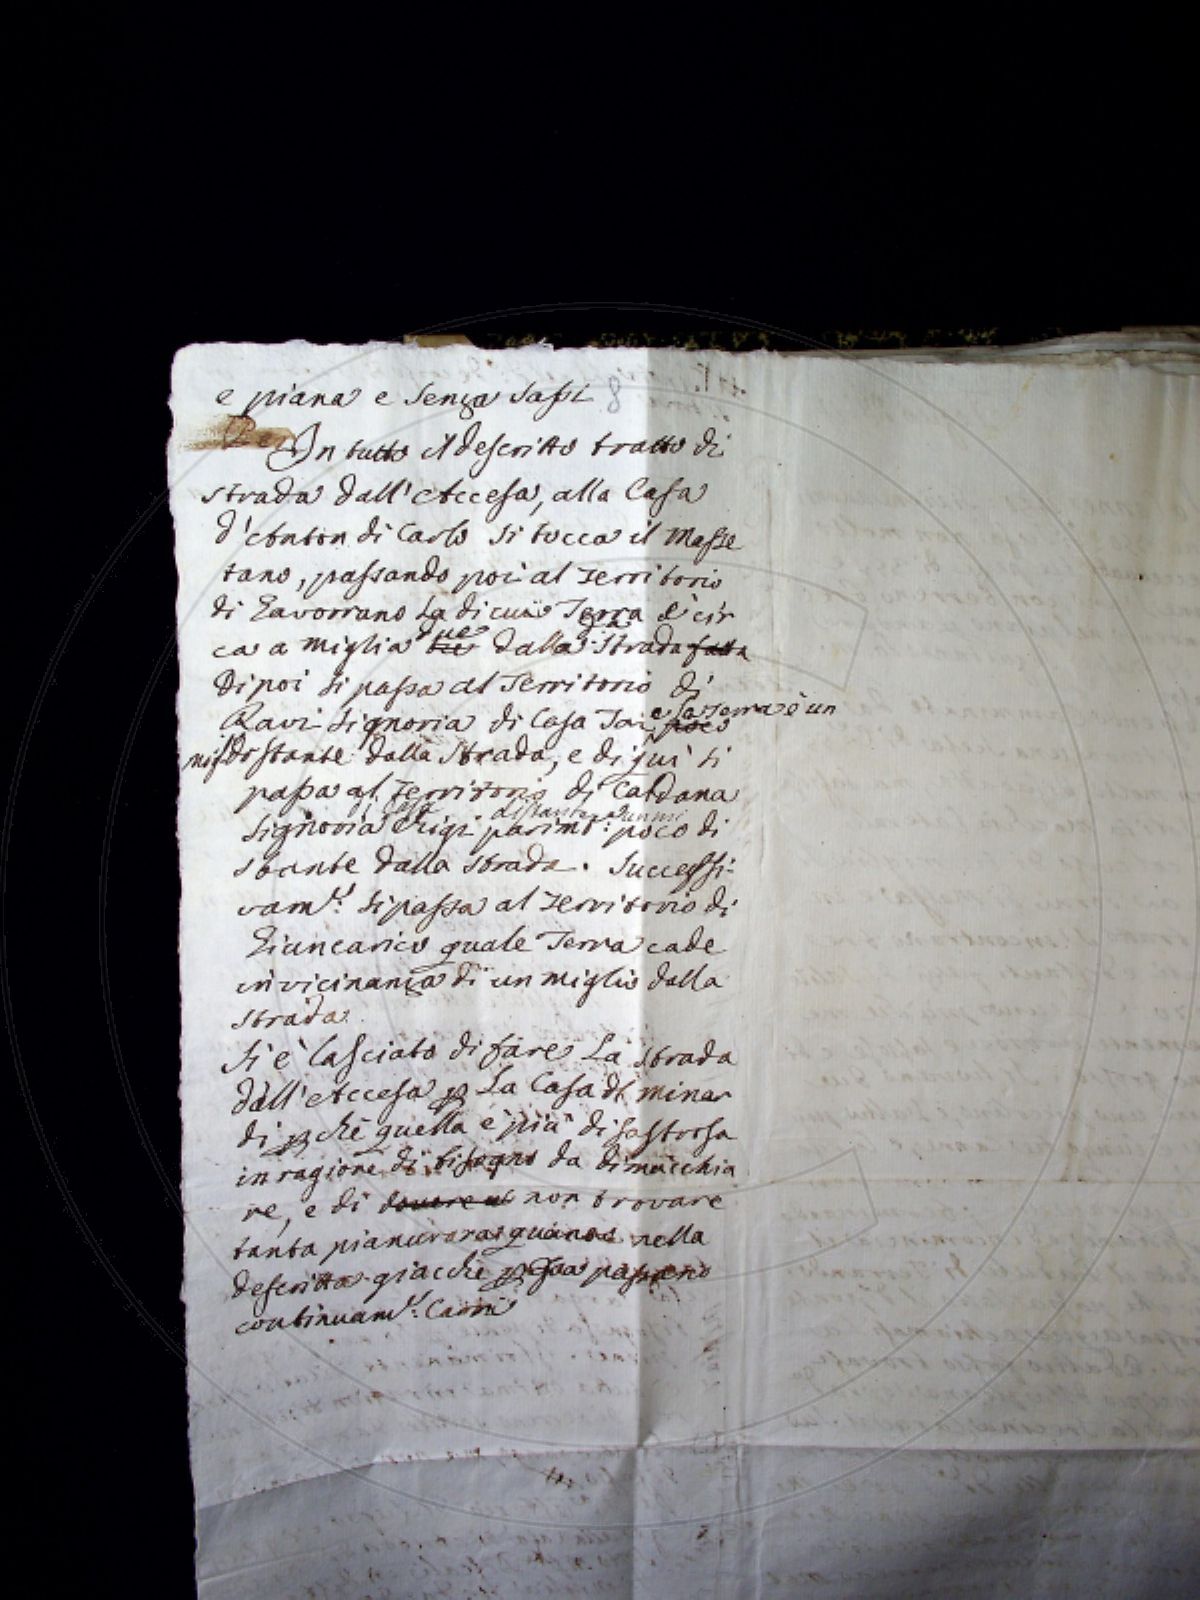 e piana e senza sassi 8
In tutto il descritto tratto di
strada dall'Accesa, alla Casa
d'Anton di Carlo si tocca il Masse
tano, passando poi al Territorio
di Gavorrano la di cui Terra è cir
ca a miglia due tre dalla strada fatta
Di poi si passa al Territorio di
Ravi Signoria di Casa e la Terra è un
distante dalla Strada, e di qui si
passa al Territorio di Caldana
di Casa distante un mi
Signoria Chigi parimte: poco di
stante dalla strada. Successi-
vamte: si passa al Territorio di
Giuncarico quale Terra cade
in vicinanza di un miglio dalla
strada
Si è lasciato di fare la strada
dall'Accesa p la Casa di minar
di p chè quella è più disastrosa
in ragione di bisogno da dimacchia
re, e di dovere non trovare
tanta pianura quanto nella
descritta giacchè p passano
continuamte: Carri